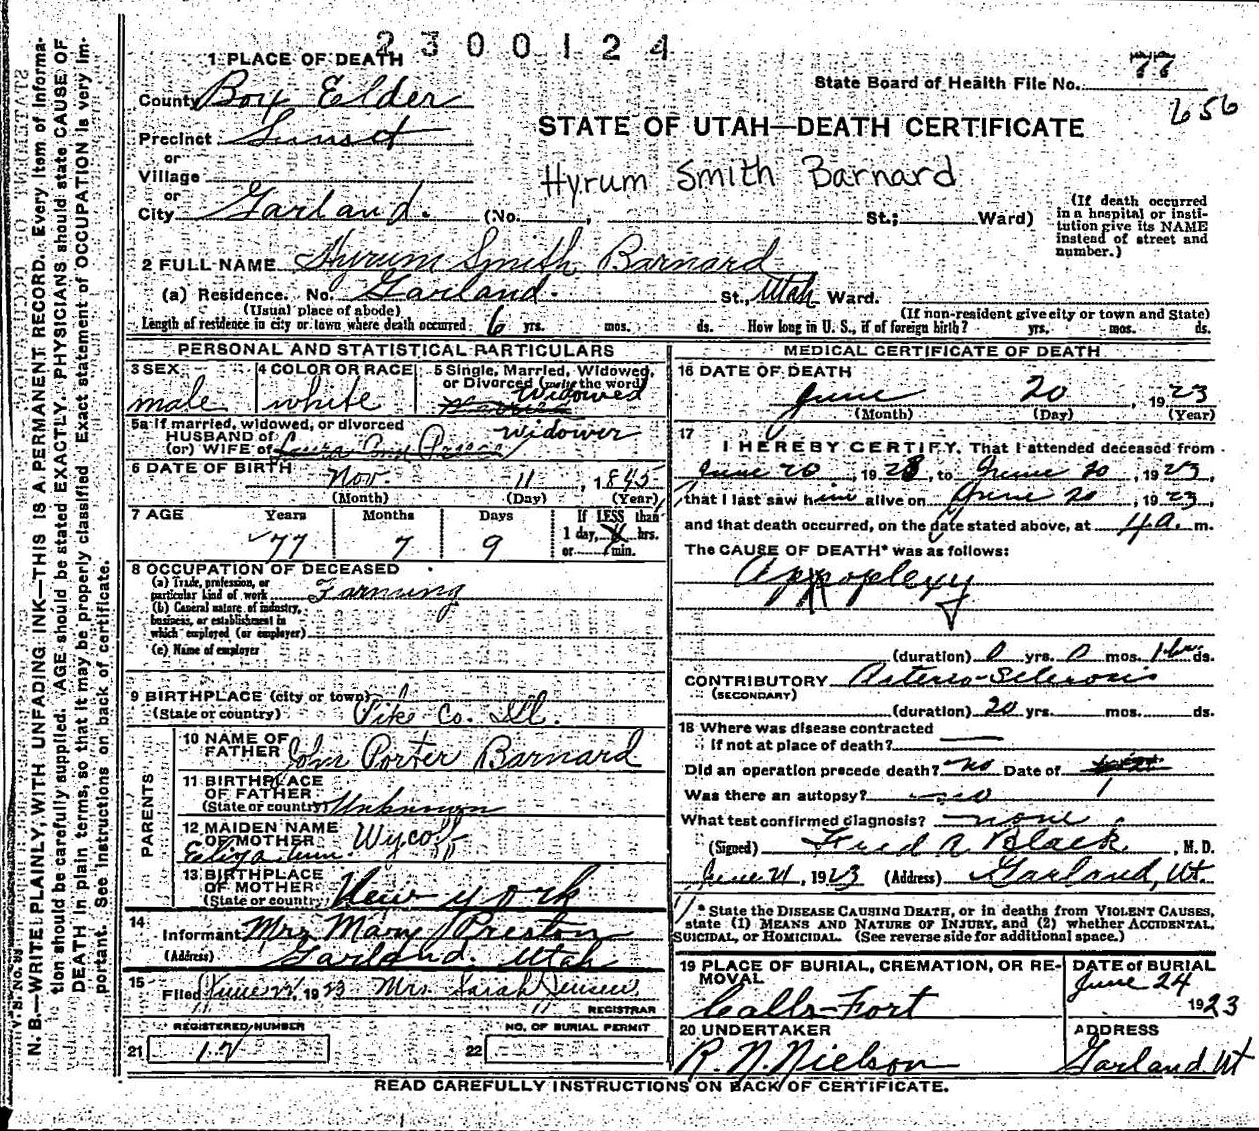 2300124
1 PLACE OF DEATH
State Board of Health File No. 77
656
County Box Elder
STATE OF UTAH—DEATH CERTIFICATE
Precinct Sunset
or
Village
Hyrum Smith Barnard
or
City Garland. (No. , St.; Ward)
(If death occurred in a hospital or insti-
tution give its NAME
instead of street and
number.)
2 FULL NAME Hyrum Smith Barnard
(a) Residence. No. Garland. St., Utah Ward.
(Usual place of abode) (If non-resident give city or town and State)
Length of residence in city or town where death occurred 6 yrs. mos. ds. How long in U. S., if of foreign birth? yrs. mos. ds.
PERSONAL AND STATISTICAL PARTICULARS
3 SEX male
4 COLOR OR RACE white
5 Single, Married, Widowed,
or Divorced (write the word)
Widowed
5a If married, widowed, or divorced
HUSBAND of Widower
(or) WIFE of Laura Ann
6 DATE OF BIRTH Nov. 11, 1845
(Month) (Day) (Year)
7 AGE Years Months Days If LESS than
1 day, hrs.
or min.
77 7 9
8 OCCUPATION OF DECEASED
(a) Trade, profession, or
particular kind of work Farming
(b) General nature of industry,
business, or establishment in
which employed (or employer)
(c) Name of employer
9 BIRTHPLACE (city or town)
(State or country) Pike Co. Ill.
PARENTS
10 NAME OF
FATHER John Porter Barnard
11 BIRTHPLACE
OF FATHER
(State or country) Unknown
12 MAIDEN NAME
OF MOTHER Wycoff
Eliza Ann.
13 BIRTHPLACE
OF MOTHER
(State or country) New York
14
Informant Mrs Mary Preston
(Address) Garland. Utah
15
Filed June 1923 Mrs. Sarah Jensen
REGISTRAR
REGISTERED NUMBER
NO. OF BURIAL PERMIT
21 12
22
MEDICAL CERTIFICATE OF DEATH
16 DATE OF DEATH
June 20, 1923
(Month) (Day) (Year)
17
I HEREBY CERTIFY, That I attended deceased from
June 20, 1923, to June 20, 1923,
that I last saw him alive on June 20, 1923,
and that death occurred, on the date stated above, at 4 a. m.
The CAUSE OF DEATH* was as follows:
Appoplexy
(duration) 0 yrs. 0 mos. 1 hr ds.
CONTRIBUTORY Arterio-Sclerosis
(SECONDARY)
(duration) 20 yrs. mos. ds.
18 Where was disease contracted
if not at place of death?
Did an operation precede death? no Date of
Was there an autopsy? no
What test confirmed diagnosis? none
(Signed) Fred A Black, M. D.
June 21, 1923 (Address) Garland, Ut.
* State the DISEASE CAUSING DEATH, or in deaths from VIOLENT CAUSES,
state (1) MEANS AND NATURE OF INJURY, and (2) whether ACCIDENTAL,
SUICIDAL, or HOMICIDAL. (See reverse side for additional space.)
19 PLACE OF BURIAL, CREMATION, OR RE-
MOVAL
Calls-Fort
DATE of BURIAL
June 24
1923
20 UNDERTAKER
R. N. Nielson
ADDRESS
Garland Ut
READ CAREFULLY INSTRUCTIONS ON BACK OF CERTIFICATE.
N. B.—WRITE PLAINLY, WITH UNFADING INK—THIS IS A PERMANENT RECORD. Every item of informa-
tion should be carefully supplied. AGE should be stated EXACTLY. PHYSICIANS should state CAUSE OF
DEATH in plain terms, so that it may be properly classified. Exact statement of OCCUPATION is very im-
portant. See instructions on back of certificate.